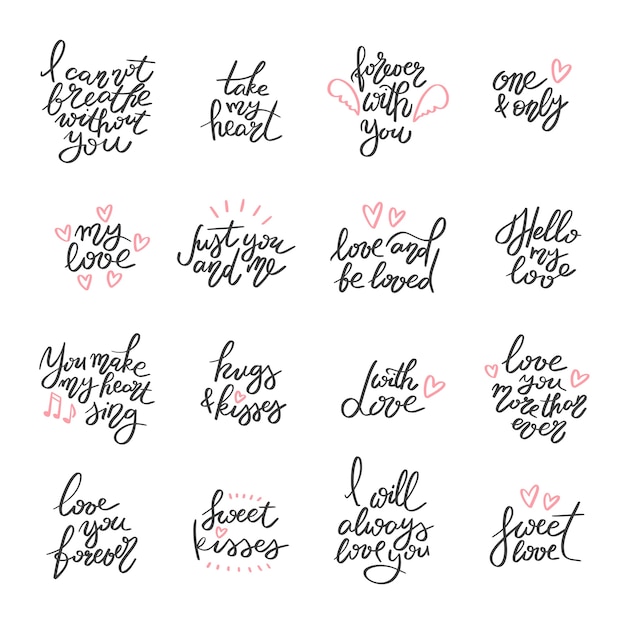 I cannot
breathe
without
you
take
my
heart
forever
with
you
one
& only
my
love
Just you
and me
love and
be loved
Hello
my
love
You make
my heart
sing
hugs
& kisses
with
Love
love
you
more than
ever
love
you
forever
sweet
kisses
I will
always
love you
Sweet
love